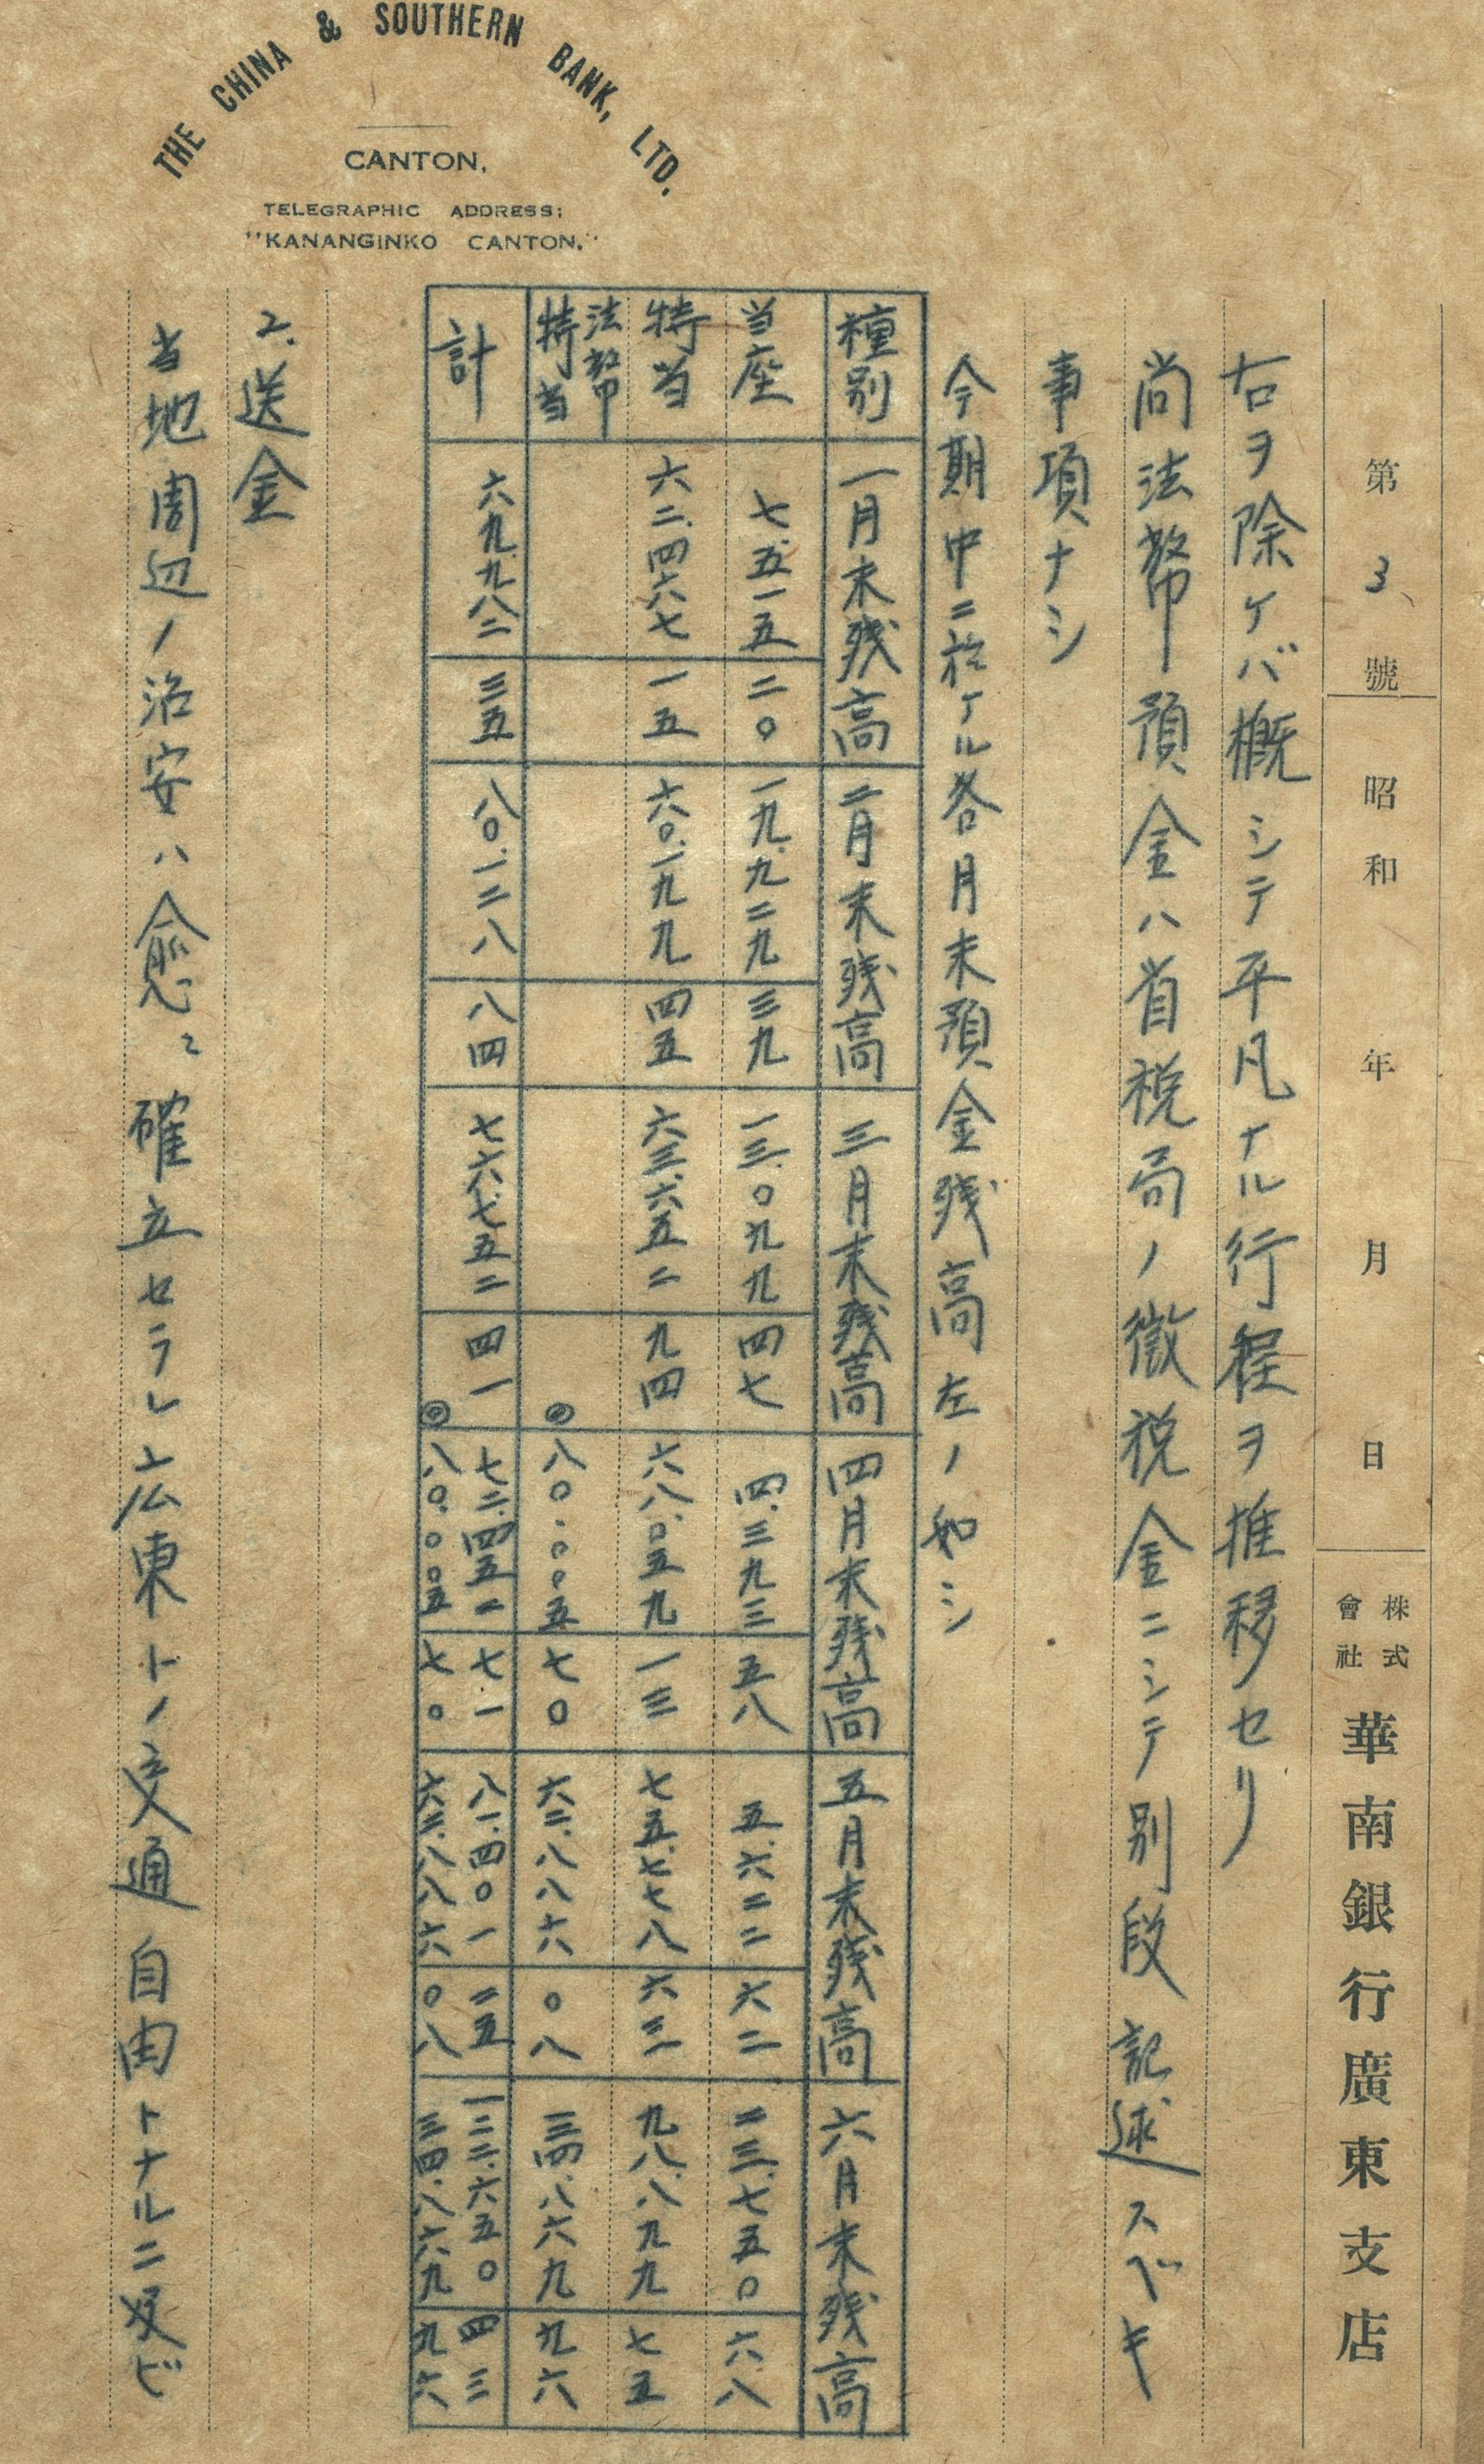 THE CHINA & SOUTHERN BANK, LTD.
CANTON.
TELEGRAPHIC ADDRESS:
"KANANGINKO CANTON."
第3、號 昭和 年 月 日 株式會社 華南銀行廣東支店
右ヲ除ケバ概シテ平凡ナル行程ヲ推移セリ
尚法幣預金ハ省税局ノ徴税金ニシテ別段記述スベキ
事項ナシ
今期中ニ於ケル各月末預金残高左ノ如シ
種別 一月末残高 二月末残高 三月末残高 四月末残高 五月末残高 六月末残高
当座 七.五一五 二〇 一九.九二九 三九 一三.〇九九 四七 四.三九三 五八 五.六二二 六二 二三.七五〇 六八
特当 六二.四六七 一五 六〇.一九九 四五 六三.六五二 九四 六八.〇五九 一三 七五.七七八 六三 九八.八九九 七五
法幣特当 八〇.〇〇五 七〇 六二.八八六 〇八 三四.八六九 九六
計 六九.九八二 三五 八〇.一二八 八四 七六.七五二 四一 七二.四五二 七一 八一.四〇一 二五 一二二.六五〇 四三
八〇.〇〇五 七〇 六二.八八六 〇八 三四.八六九 九六
2.送金
当地周辺ノ治安ハ愈〻確立セラレ広東トノ交通自由トナルニ及ビ